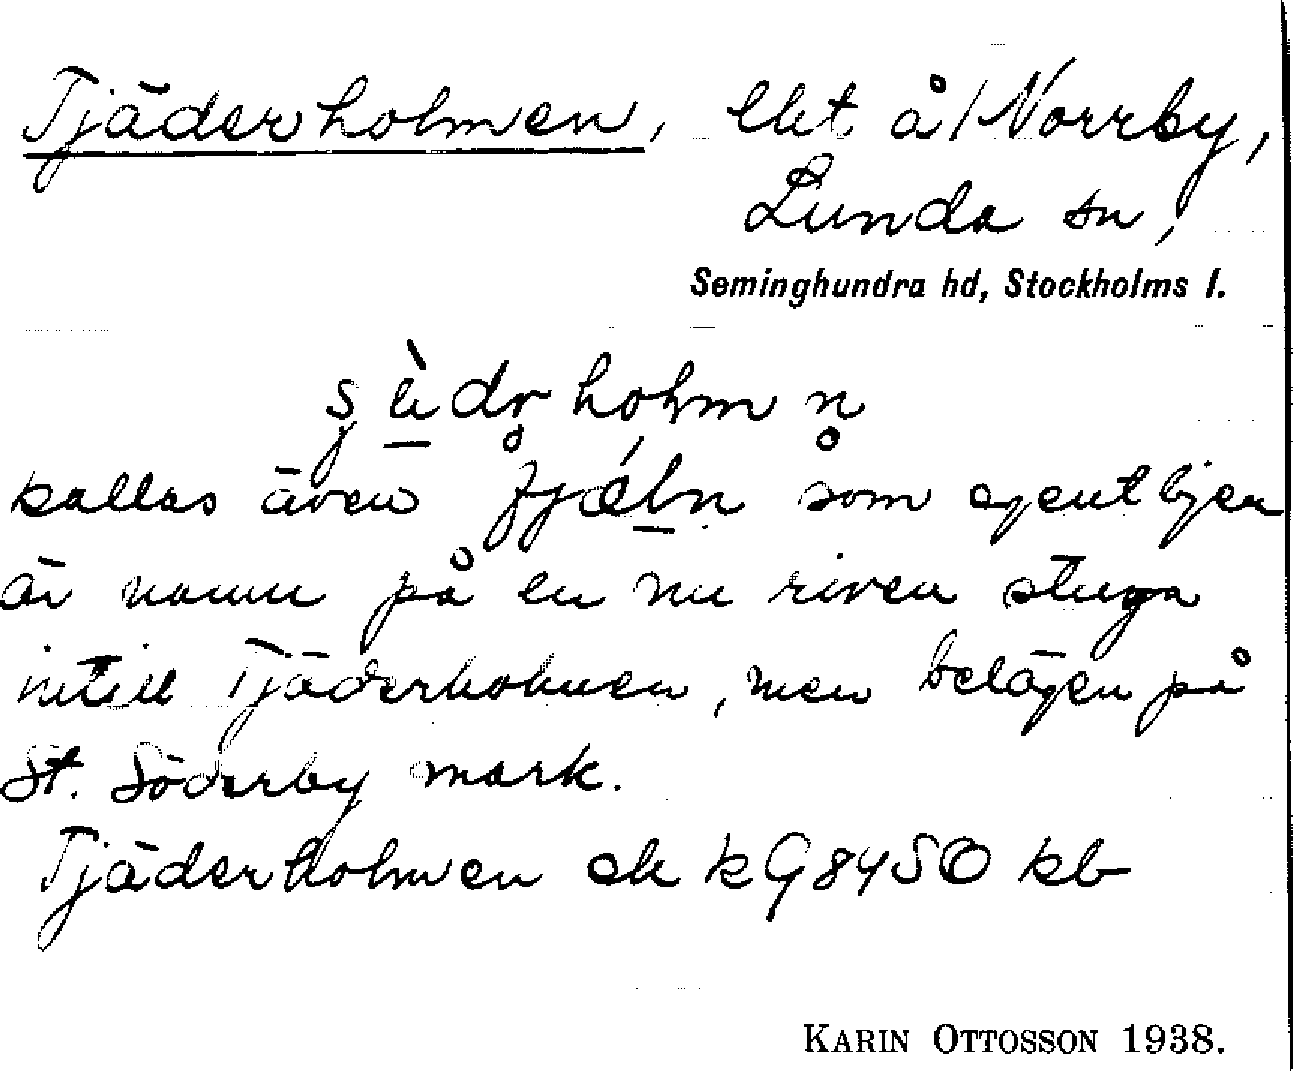 Tjäderholmen, lht å/Norrby,
Lunda sn,
Seminghundra hd, Stockholms l.
kallas även som egentligen
är namn på en nu riven stuga
intill Tjäderholmen, men belägen på
St. Söderby mark.
Tjäderholmen ek k G8450 kb
KARIN OTTOSSON 1938.